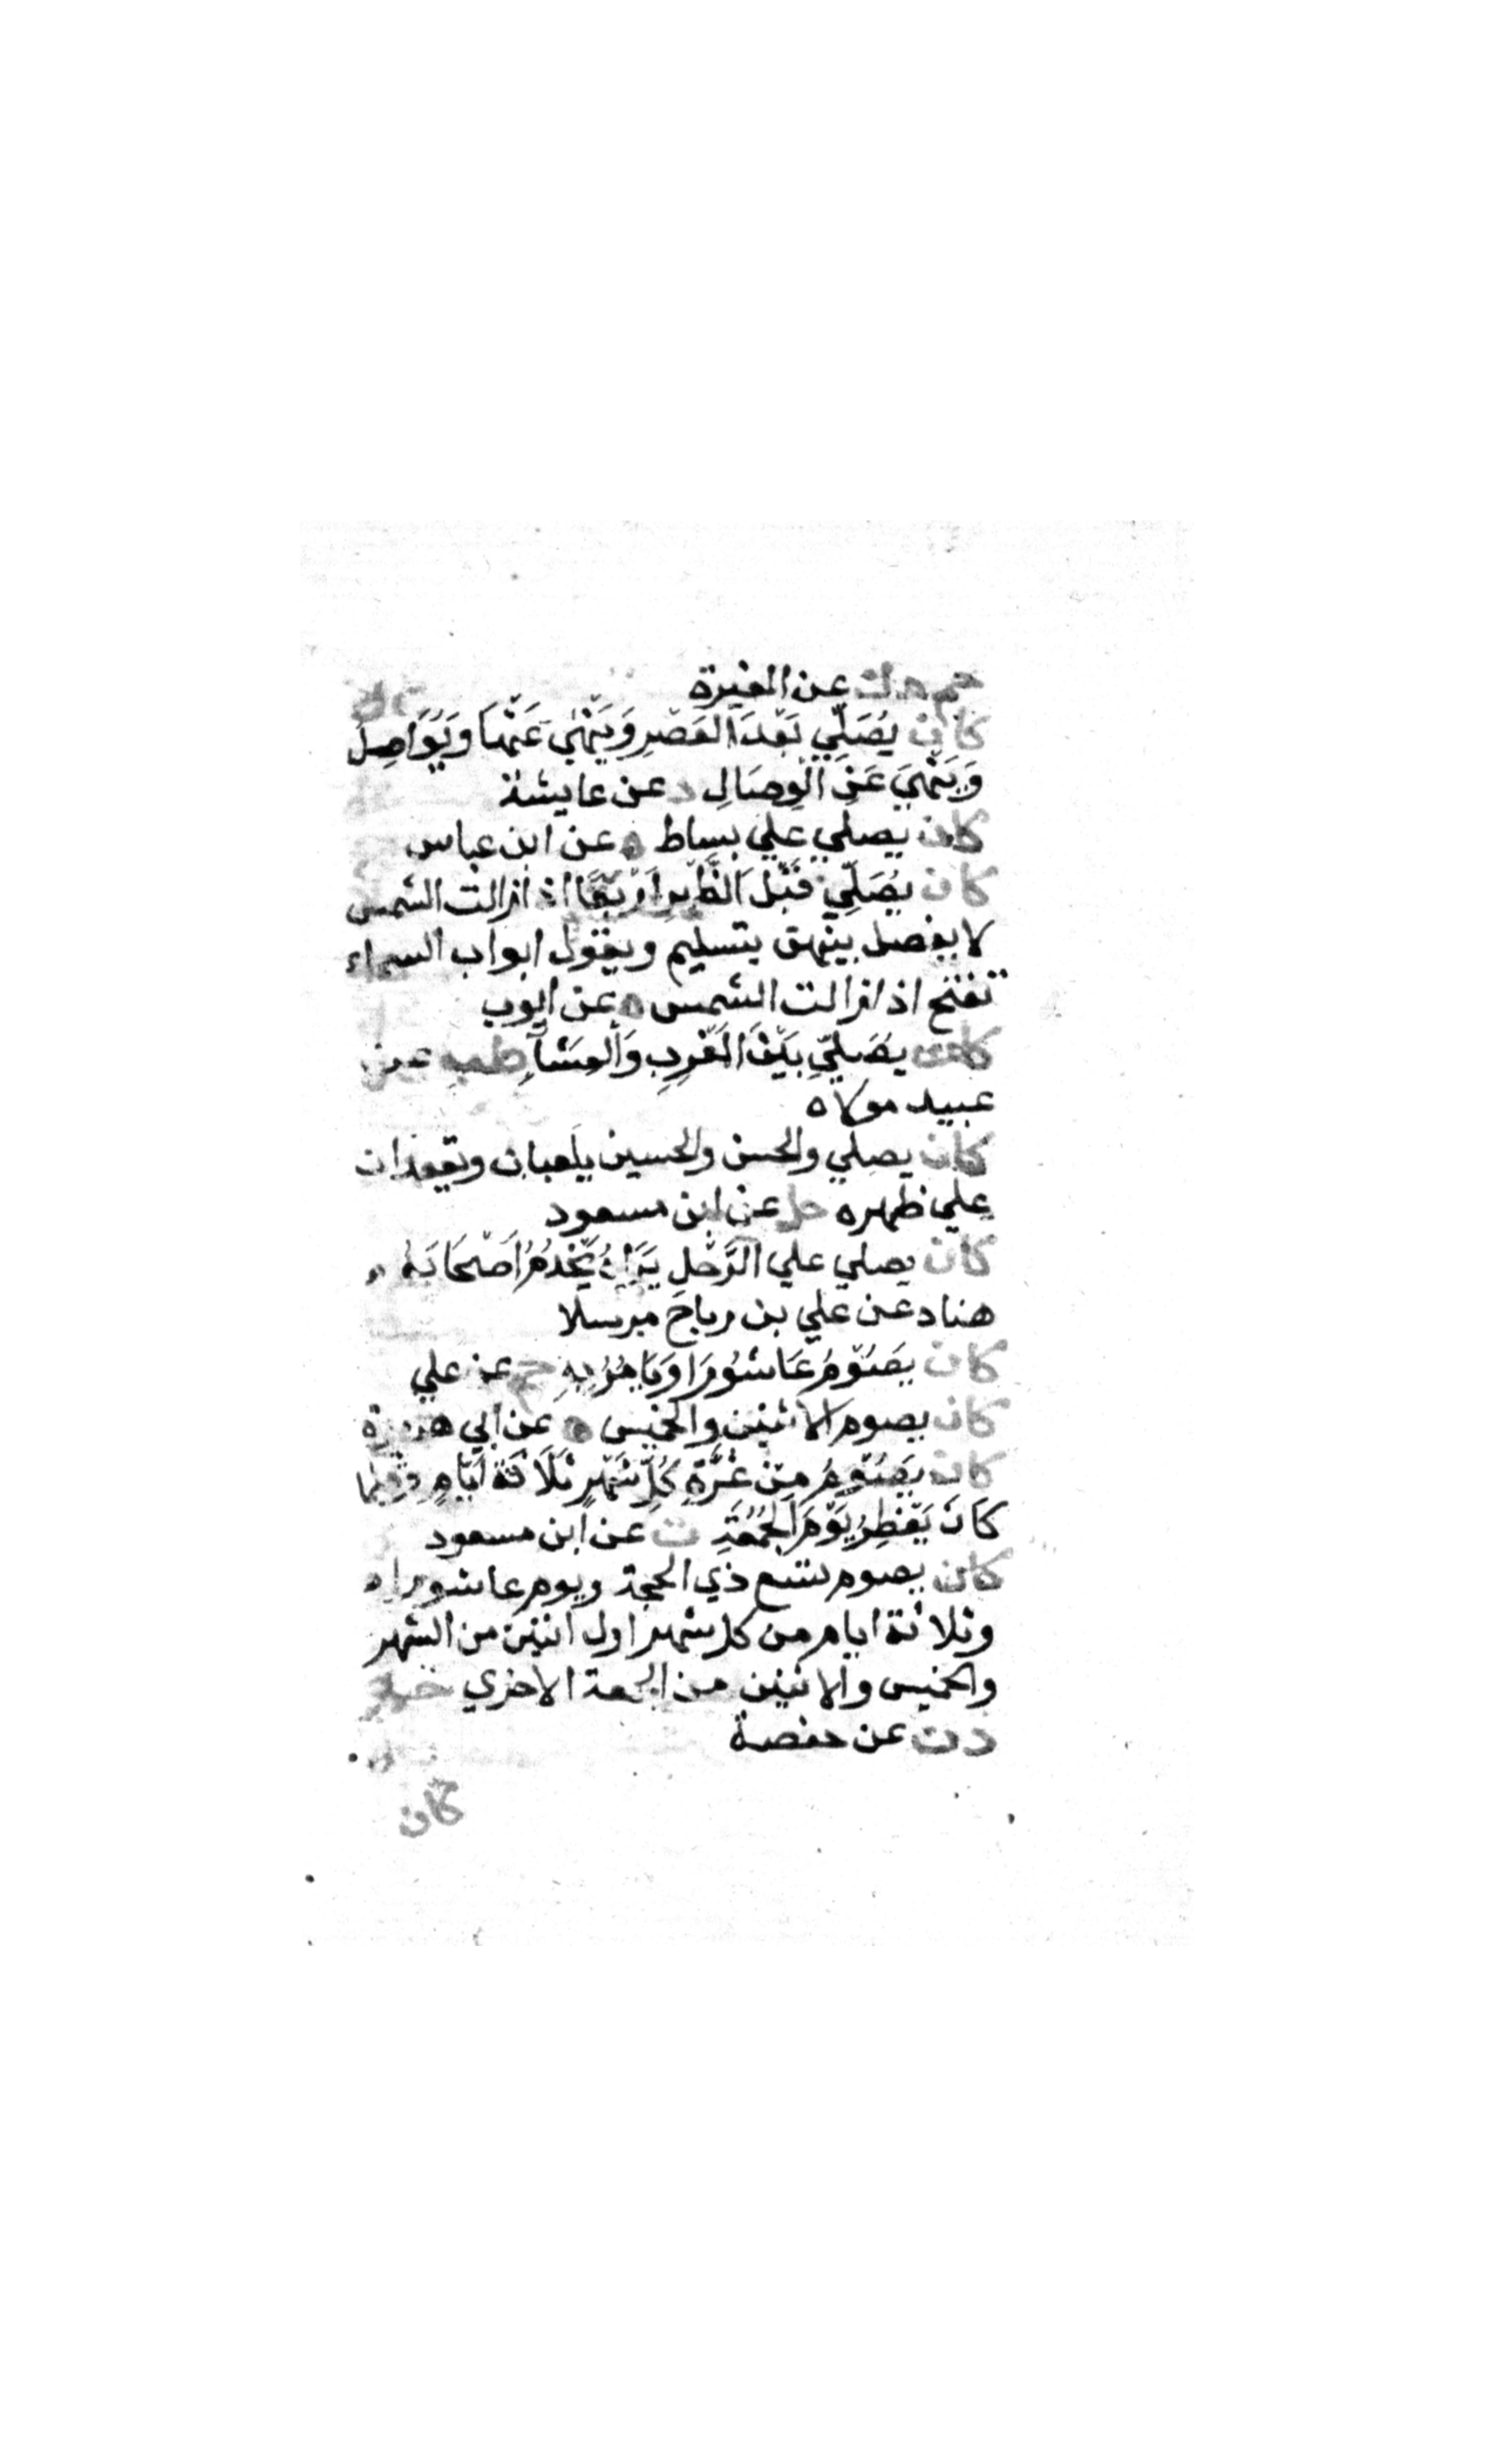 حم د ك عن المغيرة
كان يُصَلِّي بَعْدَ الْعَصْرِ وَيَنْهَى عَنْهَا وَيُوَاصِلُ
وَيَنْهَى عَنِ الْوِصَالِ د عن عايشة
كان يصلي علي بساط ه عن ابن عباس
كان يُصَلِّي قَبْلَ الظُّهْرِ أَرْبَعًا اذا زالت الشمس
لا يفصل بينهن بتسليم ويقول ابواب السماء
تفتح اذا زالت الشمس ه عن ايوب
كان يُصَلِّي بَيْنَ الْمَغْرِبِ وَالْعِشَآءِ طب عن
عبيد مولاه
كان يصلي والحسن والحسين يلعبان ويقعدان
علي ظهره حل عن ابن مسعود
كان يصلي علي الرَّجُلِ يَرَاهُ يَخْدُمُ أَصْحَابَهُ
هناد عن علي بن رباح مرسلا
كان يَصُوْمُ عَاشُورَا وَيَامُرُ بِهِ حم عن علي
كان يصوم الاثنين والخميس ه عن ابي هريرة
كان يَصُوْمُ مِنْ غُرَّةِ كُلِّ شَهْرٍ ثَلَاثَةَ أَيَّامٍ وَقَلَّمَا
كَانَ يُفْطِرُ يَوْمَ الْجُمُعَةِ ت عن ابن مسعود
كان يصوم تسع ذي الحجة ويوم عاشوراء
وثلاثة ايام من كل شهر اول اثنين من الشهر
والخميس والاثنين من الجمعة الاخري حم
د ن عن حفصة
كان